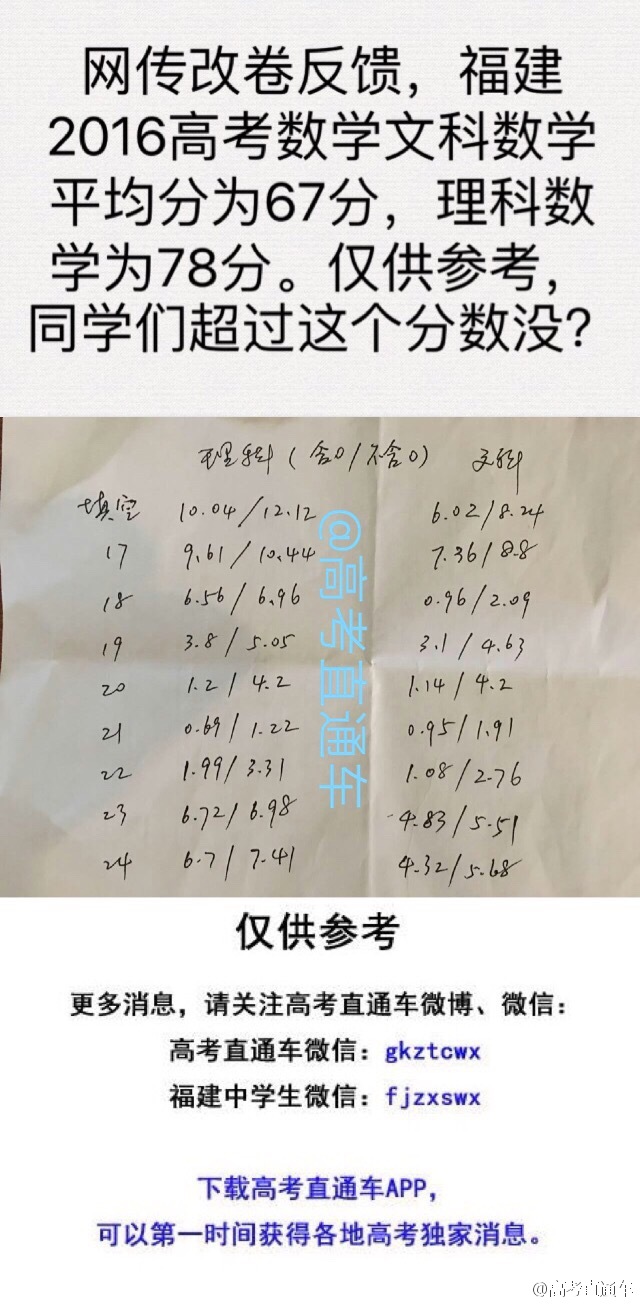 网传改卷反馈，福建
2016高考数学文科数学
平均分为67分，理科数
学为78分。仅供参考，
同学们超过这个分数没？
理科（含0/不含0） 文科
填空 10.04/12.12 6.02/8.24
17 9.61/10.44 7.36/8.8
18 6.56/6.96 0.96/2.09
19 3.8/5.05 3.1/4.63
20 1.2/4.2 1.14/4.2
21 0.69/1.22 0.95/1.91
22 1.99/3.31 1.08/2.76
23 6.72/6.98 4.83/5.51
24 6.7/7.41 4.32/5.68
@高考直通车
仅供参考
更多消息，请关注高考直通车微博、微信：
高考直通车微信：gkztcwx
福建中学生微信：fjzxswx
下载高考直通车APP，
可以第一时间获得各地高考独家消息。
@高考直通车